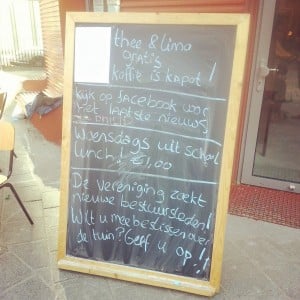 thee & limo
GRATIS
koffie is kapot!
kijk op facebook voor
het laatste nieuws
Woensdags uit school
lunch! €1,00
De vereniging zoekt
nieuwe bestuursleden!
Wilt u mee beslissen over
de tuin? Geef u op!!